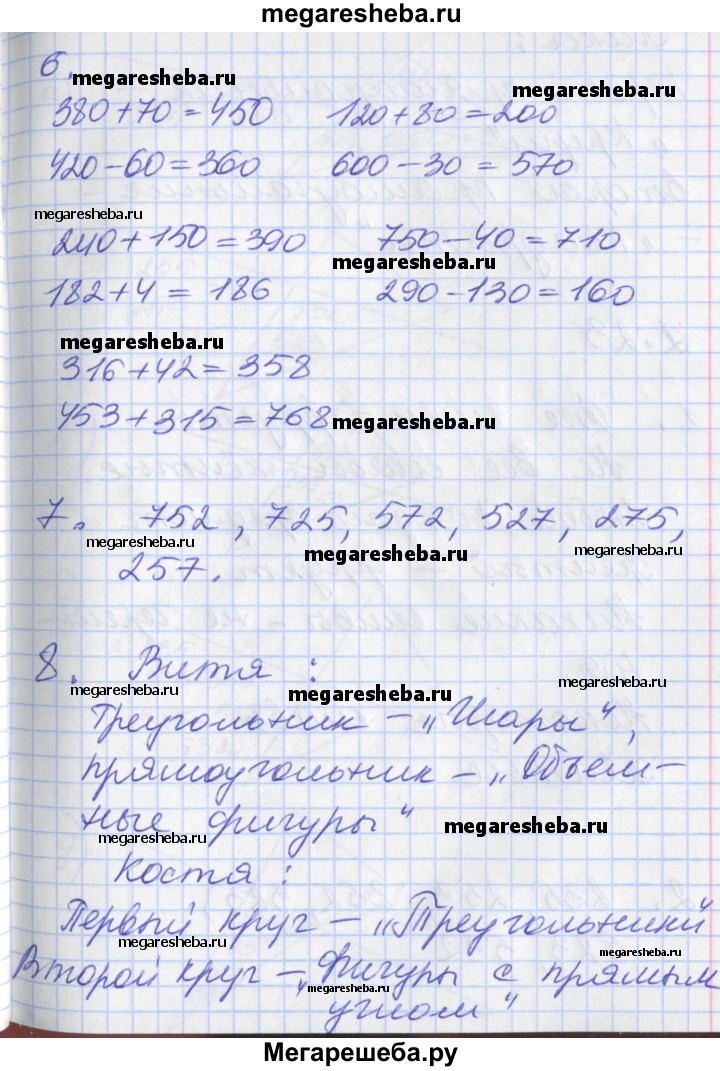 megaresheba.ru
6.
megaresheba.ru
380+70=450 120+80=200
420-60=360 600-30=570
megaresheba.ru
240+150=390 750-40=710
megaresheba.ru
182+4=186 290-130=160
megaresheba.ru
316+42=358
453+315=768
megaresheba.ru
7. 752, 725, 572, 527, 275,
megaresheba.ru megaresheba.ru megaresheba.ru
257.
8. Витя :
megaresheba.ru megaresheba.ru
Треугольник – „Шары“,
прямоугольник – „Объем-
ные фигуры“
megaresheba.ru megaresheba.ru
Костя :
Первый круг – „Треугольники“
megaresheba.ru megaresheba.ru
Второй круг – „Фигуры с прямым
megaresheba.ru
углом“
Мегарешеба.ру